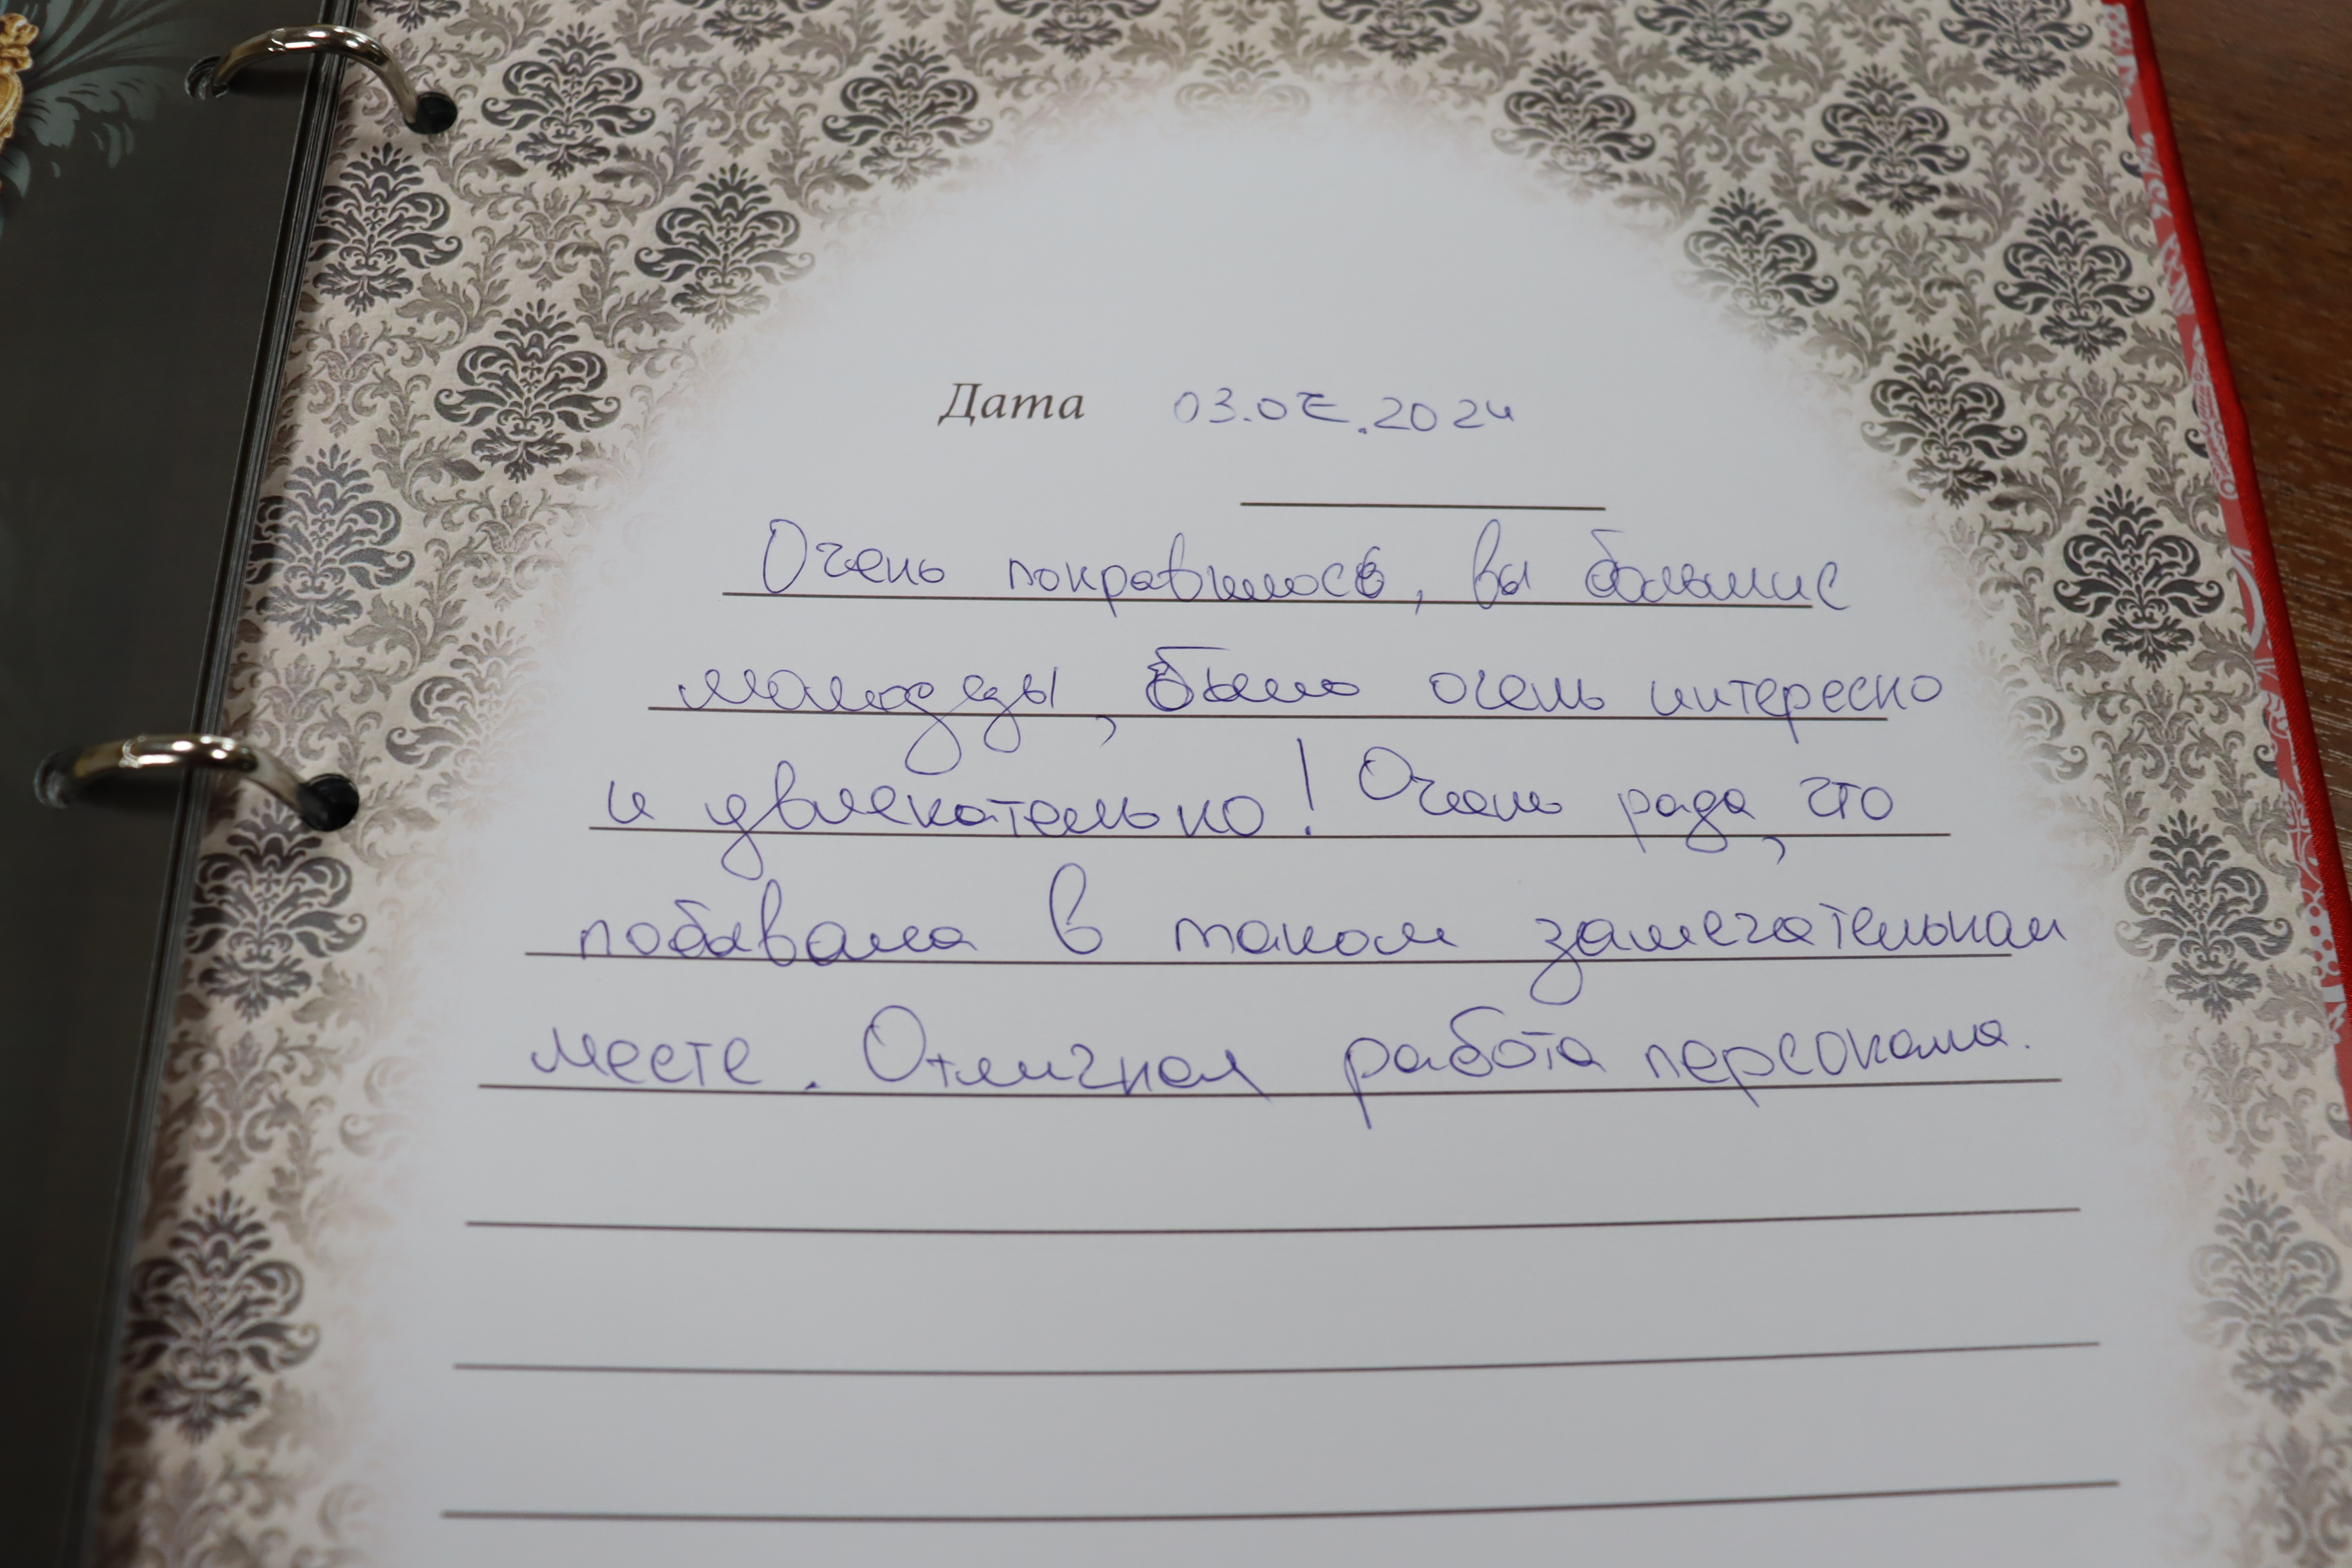 Дата 03.07.2024
Очень понравилось, вы большие
молодцы, было очень интересно
и увлекательно! Очень рада, что
побывала в таком замечательном
месте. Отличная работа персонала.